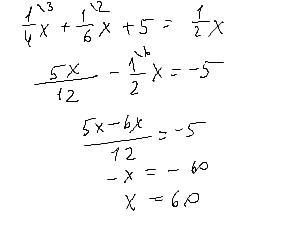 1\3/4 x + 1\2/6 x + 5 = 1/2 x
5x/12 - 1\6/2 x = -5
5x-6x/12 = -5
-x = -60
x = 60